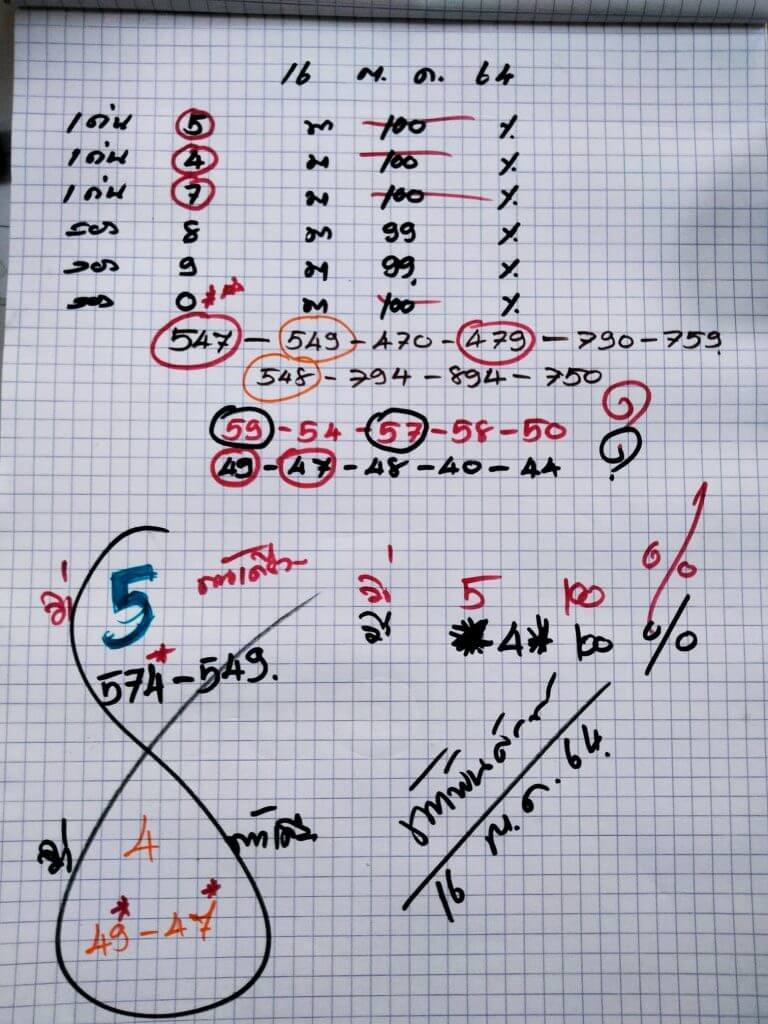 16 ต.ค. 64
1 เด่น 5 มา 100 %
1 เด่น 4 มา 100 %
1 เด่น 7 มา 100 %
รอง 8 มา 99 %
รอง 9 มา 99 %
รอง 0 ** มา 100 %
547 - 549 - 470 - 479 - 790 - 759
548 - 794 - 894 - 750
59 - 54 - 57 - 58 - 50
49 - 47 - 48 - 40 - 44
5
5 100 %
*4* 100 %
574* - 549.
4
49 - 47
16 ต.ค. 64.